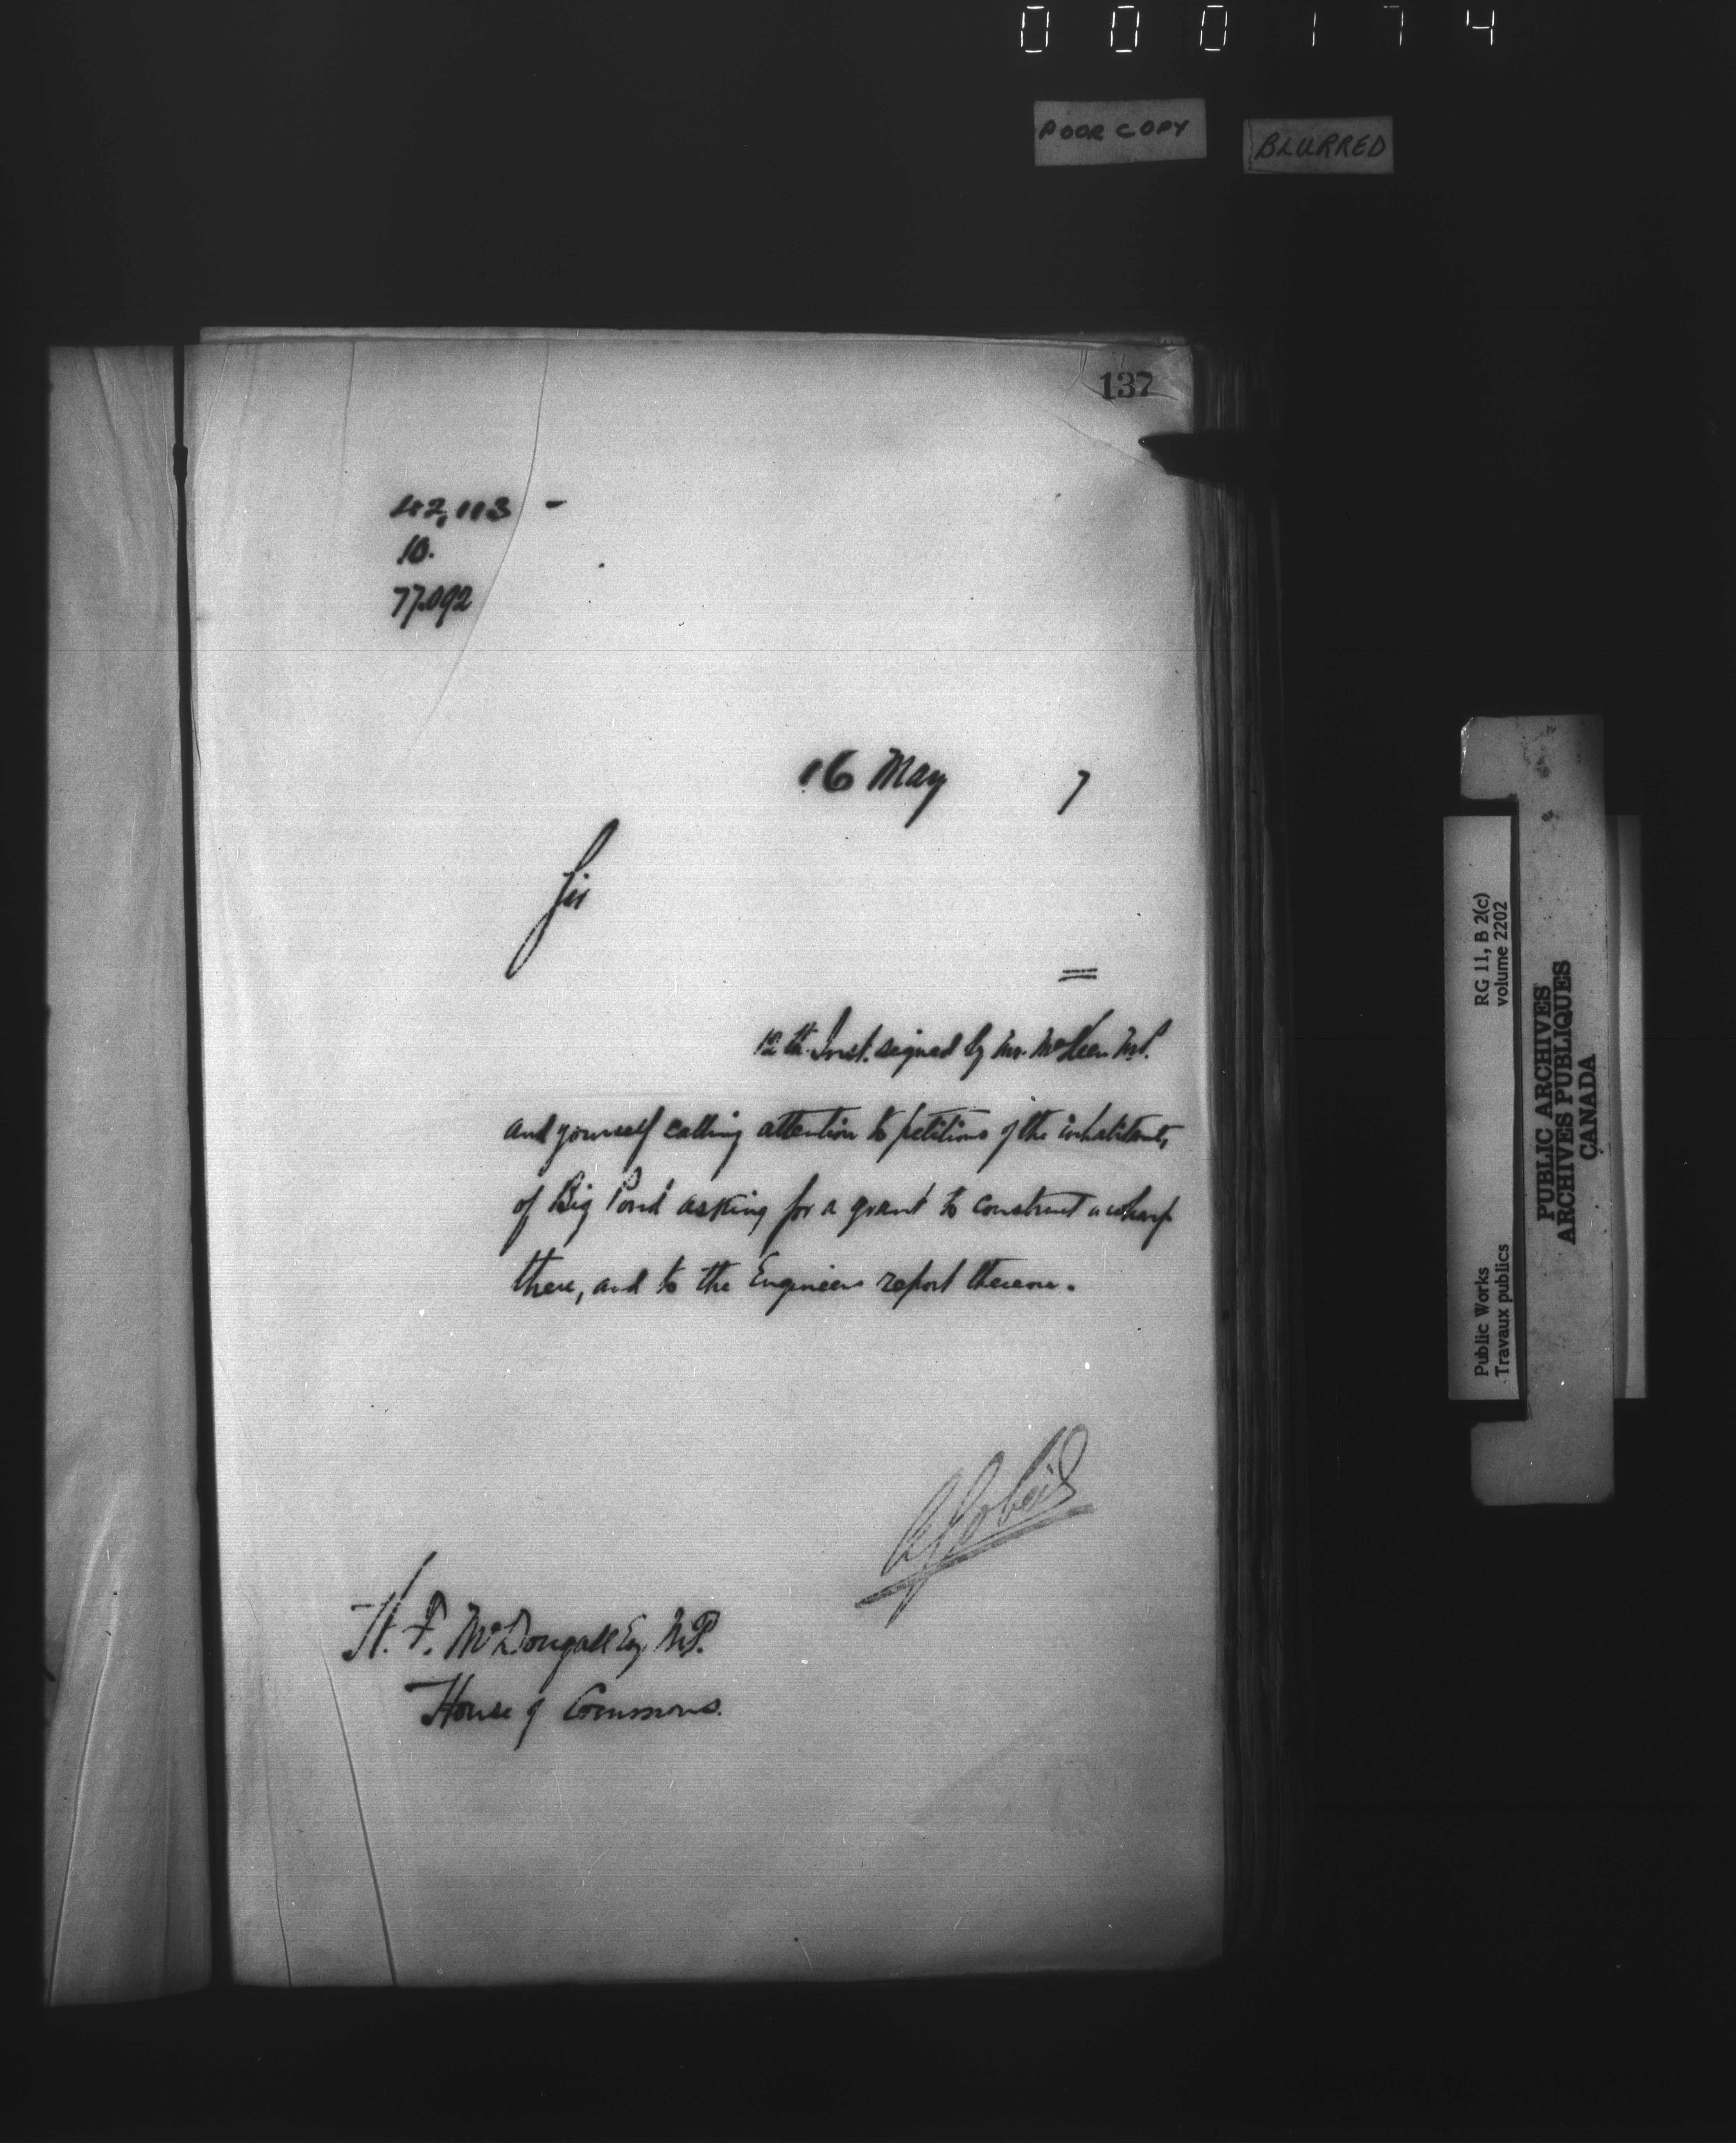 000174
POOR COPY
BLURRED
137
42,113 -
10.
77.092
16 May 7
Sir
=
12th Inst. signed by Mr. McKeen M.P.
and yourself calling attention to petitions of the inhabitants
of Big Pond asking for a grant to construct a wharf
there, and to the Engineers report thereon.
H. F. McDougall Esq M.P.
House of Commons.
Public Works RG 11, B 2(c)
Travaux publics volume 2202
PUBLIC ARCHIVES
ARCHIVES PUBLIQUES
CANADA